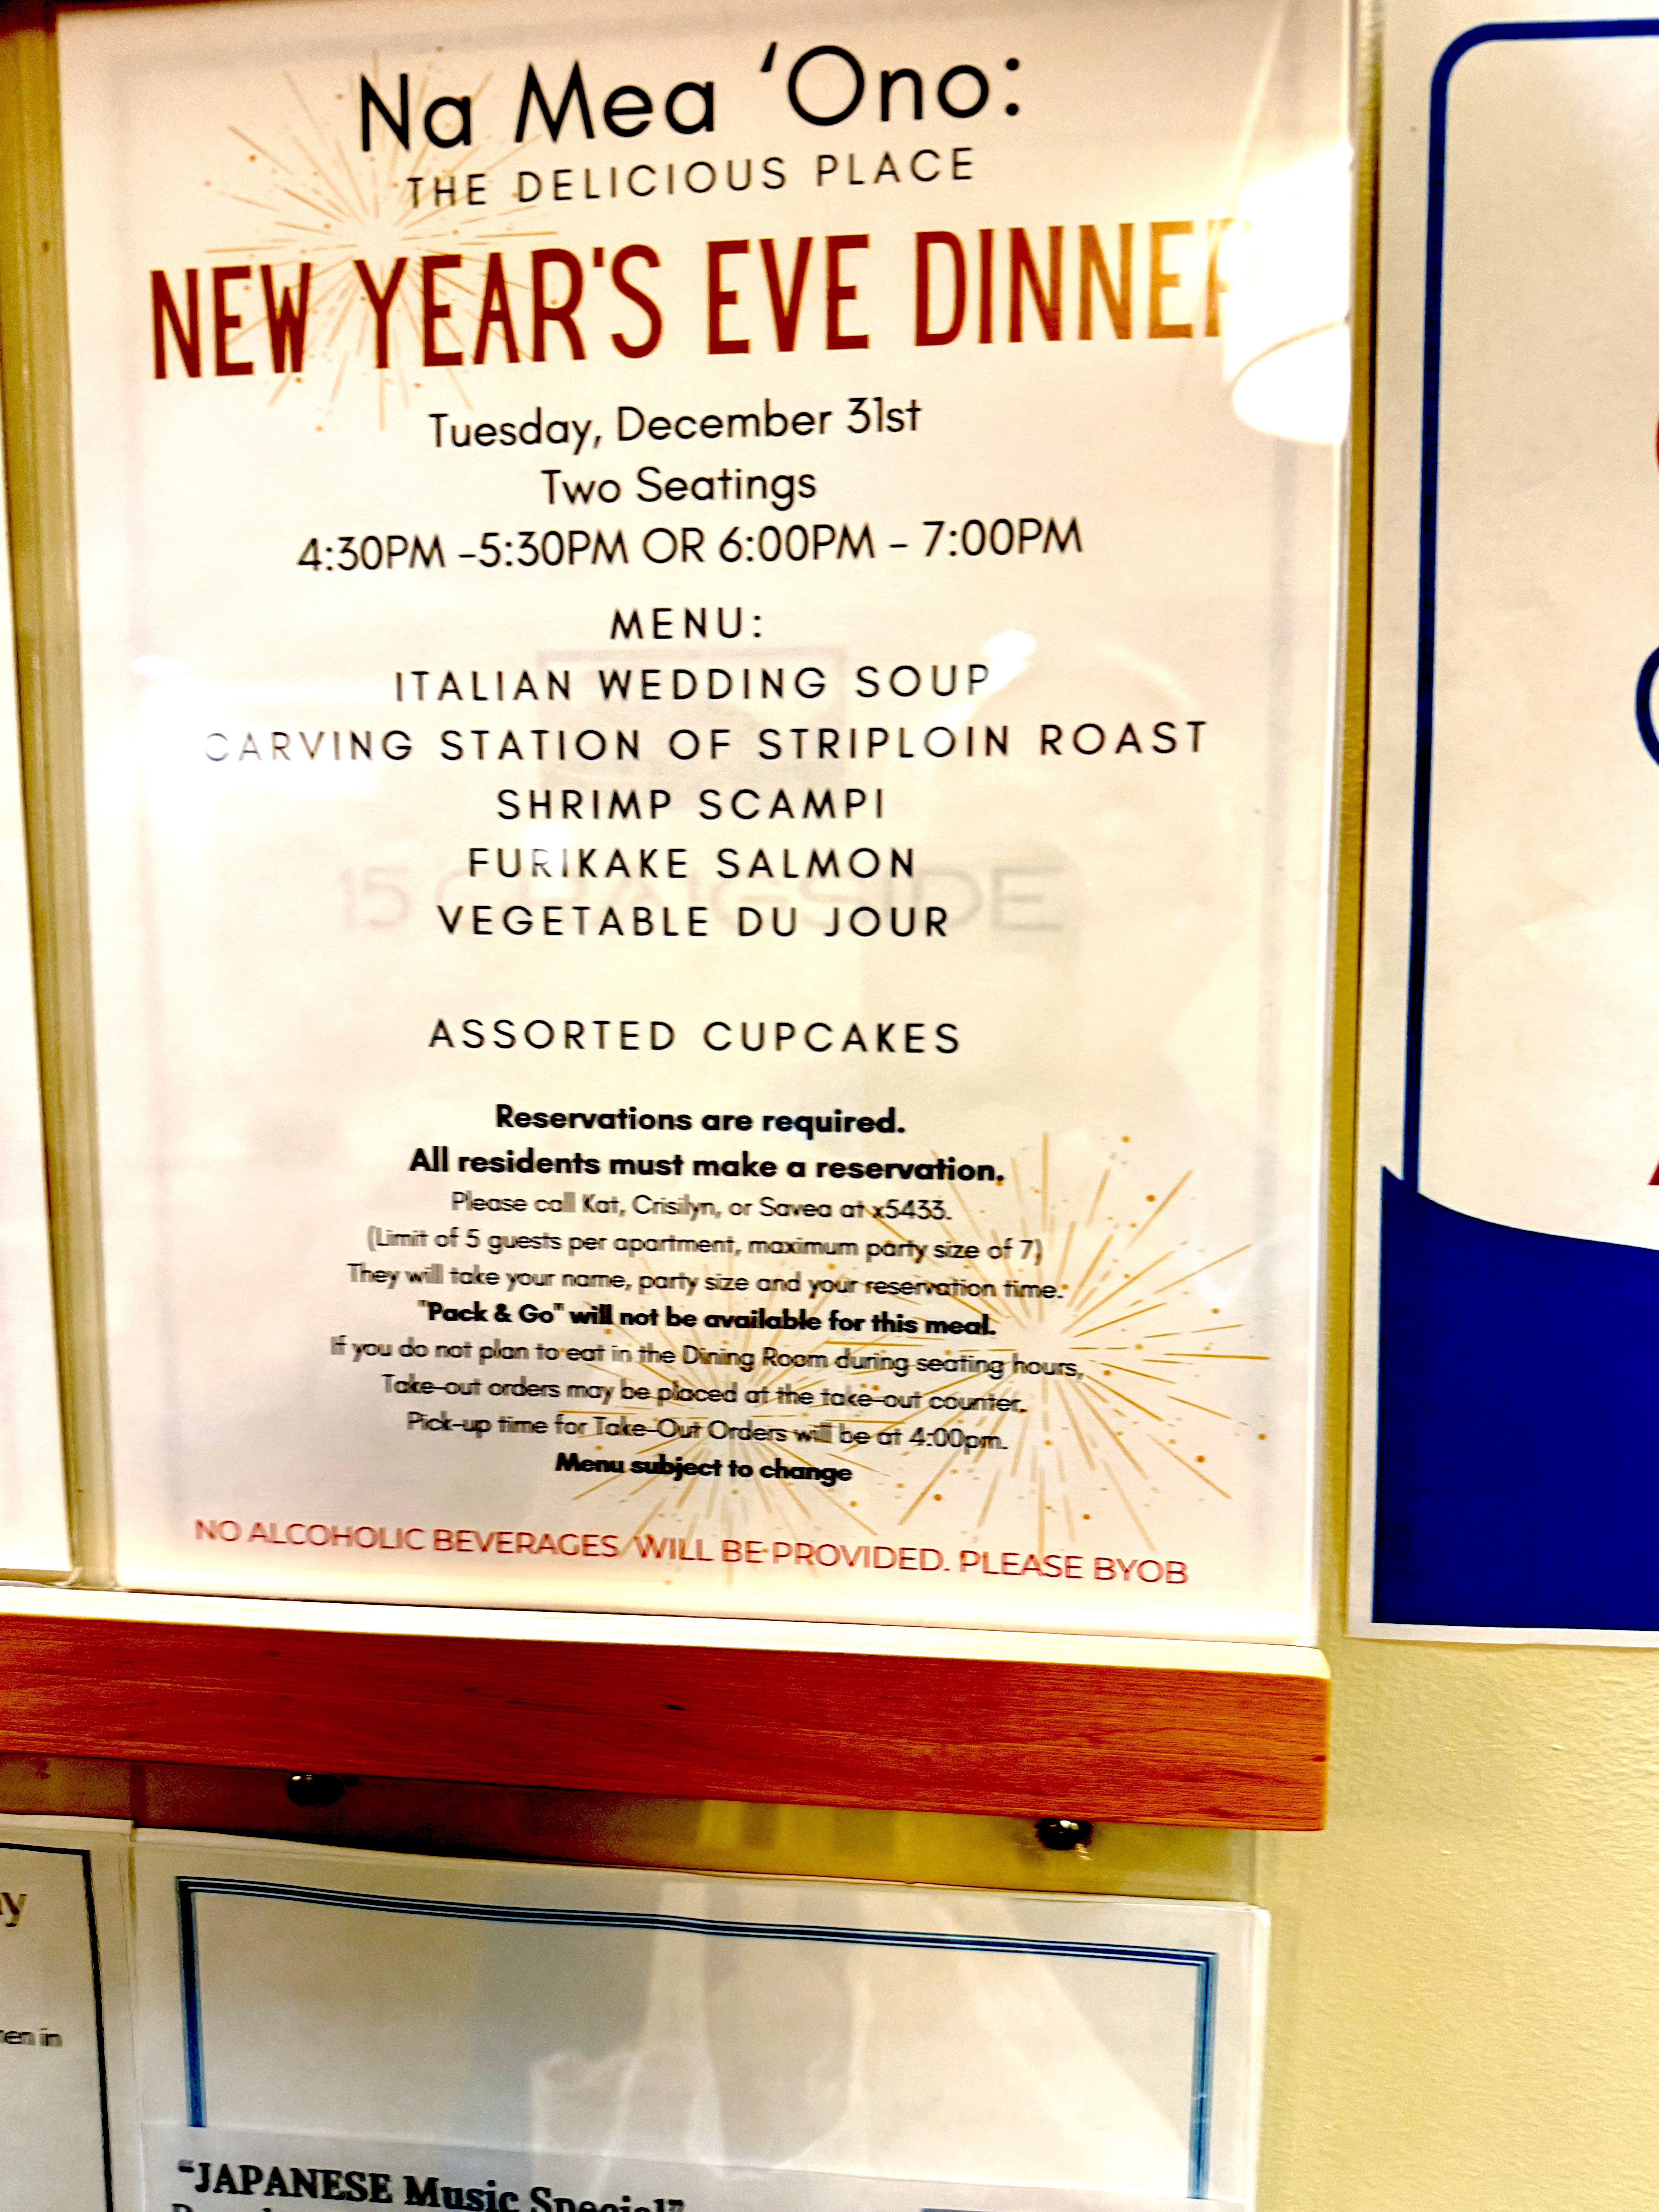 Na Mea ʻOno:
THE DELICIOUS PLACE
NEW YEAR'S EVE DINNER
Tuesday, December 31st
Two Seatings
4:30PM -5:30PM OR 6:00PM - 7:00PM
MENU:
ITALIAN WEDDING SOUP
CARVING STATION OF STRIPLOIN ROAST
SHRIMP SCAMPI
FURIKAKE SALMON
15 CRAIGSIDE
VEGETABLE DU JOUR
ASSORTED CUPCAKES
Reservations are required.
All residents must make a reservation.
Please call Kat, Crisilyn, or Savea at x5433.
(Limit of 5 guests per apartment, maximum party size of 7)
They will take your name, party size and your reservation time.
"Pack & Go" will not be available for this meal.
If you do not plan to eat in the Dining Room during seating hours,
Take-out orders may be placed at the take-out counter.
Pick-up time for Take-Out Orders will be at 4:00pm.
Menu subject to change
NO ALCOHOLIC BEVERAGES WILL BE PROVIDED. PLEASE BYOB
“JAPANESE Music Special”